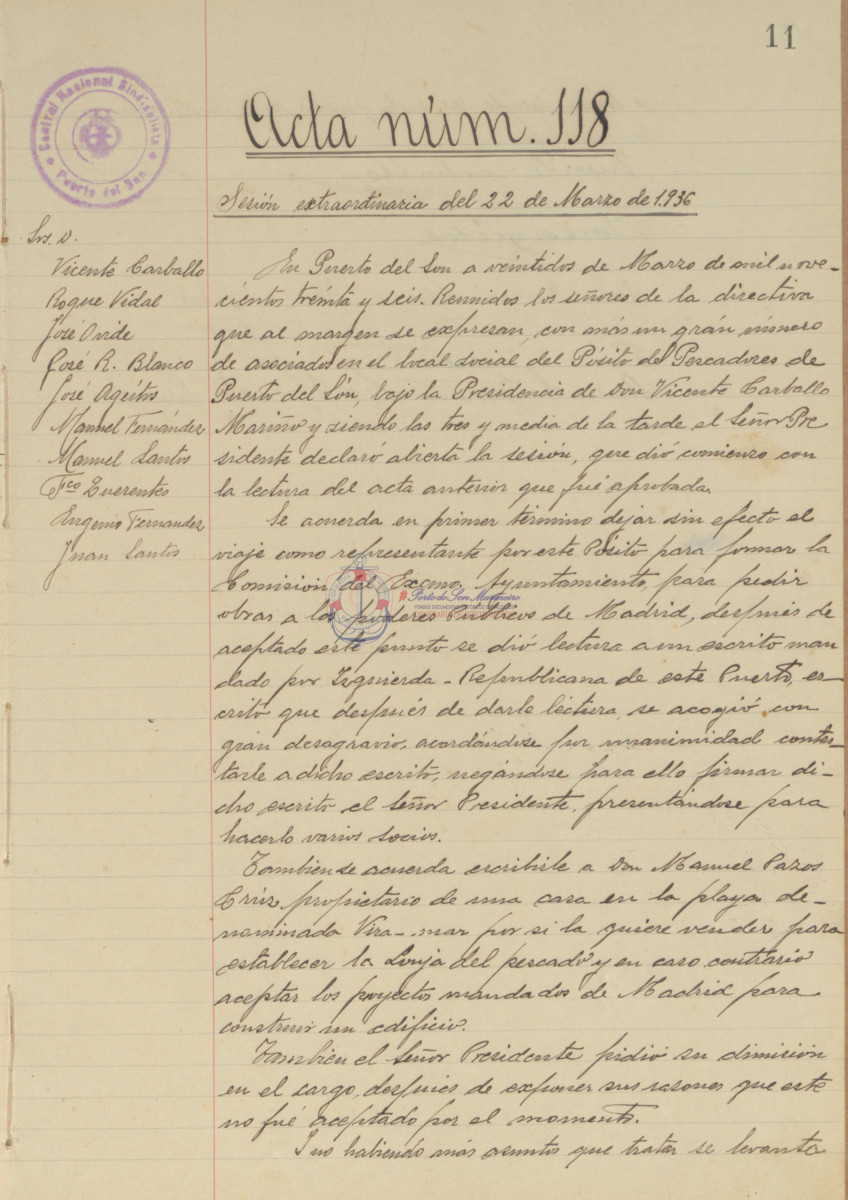 11
Central Nacional Sindicalista
Puerto del Son
Acta núm. 118
Sesión extraordinaria del 22 de Marzo de 1.936
Srs. D.
Vicente Carballo
Roque Vidal
José Ovide
José R. Blanco
José Ageitos
Manuel Fernández
Manuel Santos
Fco
Eugenio Fernandez
Juan Santos
En Puerto del Son a veintidos de Marzo de mil nove-
cientos treinta y seis. Reunidos los señores de la directiva
que al margen se expresan, con más un grán número
de asociados en el local social del Pósito de Pescadores de
Puerto del Són, bajo la Presidencia de Don Vicente Carballo
Mariño y siendo las tres y media de la tarde el Señor Pre
sidente declaró abierta la sesión, que dió comienzo con
la lectura del acta anterior que fué aprobada.
Se acuerda en primer término dejar sin efecto el
viaje como representante por este Pósito para formar la
Comisión del Excmo. Ayuntamiento para pedir
obras a los poderes Públicos de Madrid, después de
aceptado este punto se dió lectura a un escrito man
dado por Izquierda - Republicana de este Puerto, es-
crito que después de darle lectura, se acogió con
grán desagravio, acordándose por unanimidad contes-
tarle a dicho escrito, negándose para ello firmar di-
cho escrito el Señor Presidente, presentándose para
hacerlo varios socios.
Tambien se acuerda escribirle a Don Manuel Pazos
Crúz, propietario de una casa en la playa de-
nominada Vira-mar por si la quiere vender para
establecer la Lonja del pescado y en caso contrario
aceptar los proyectos mandados de Madrid para
construir un edificio.
Tambien el Señor Presidente pidió su dimisión
en el cargo, después de exponer sus razones que este
no fué aceptado por el momento.
I no habiendo más asuntos que tratar se levanta
Porto do Son Mariñeiro